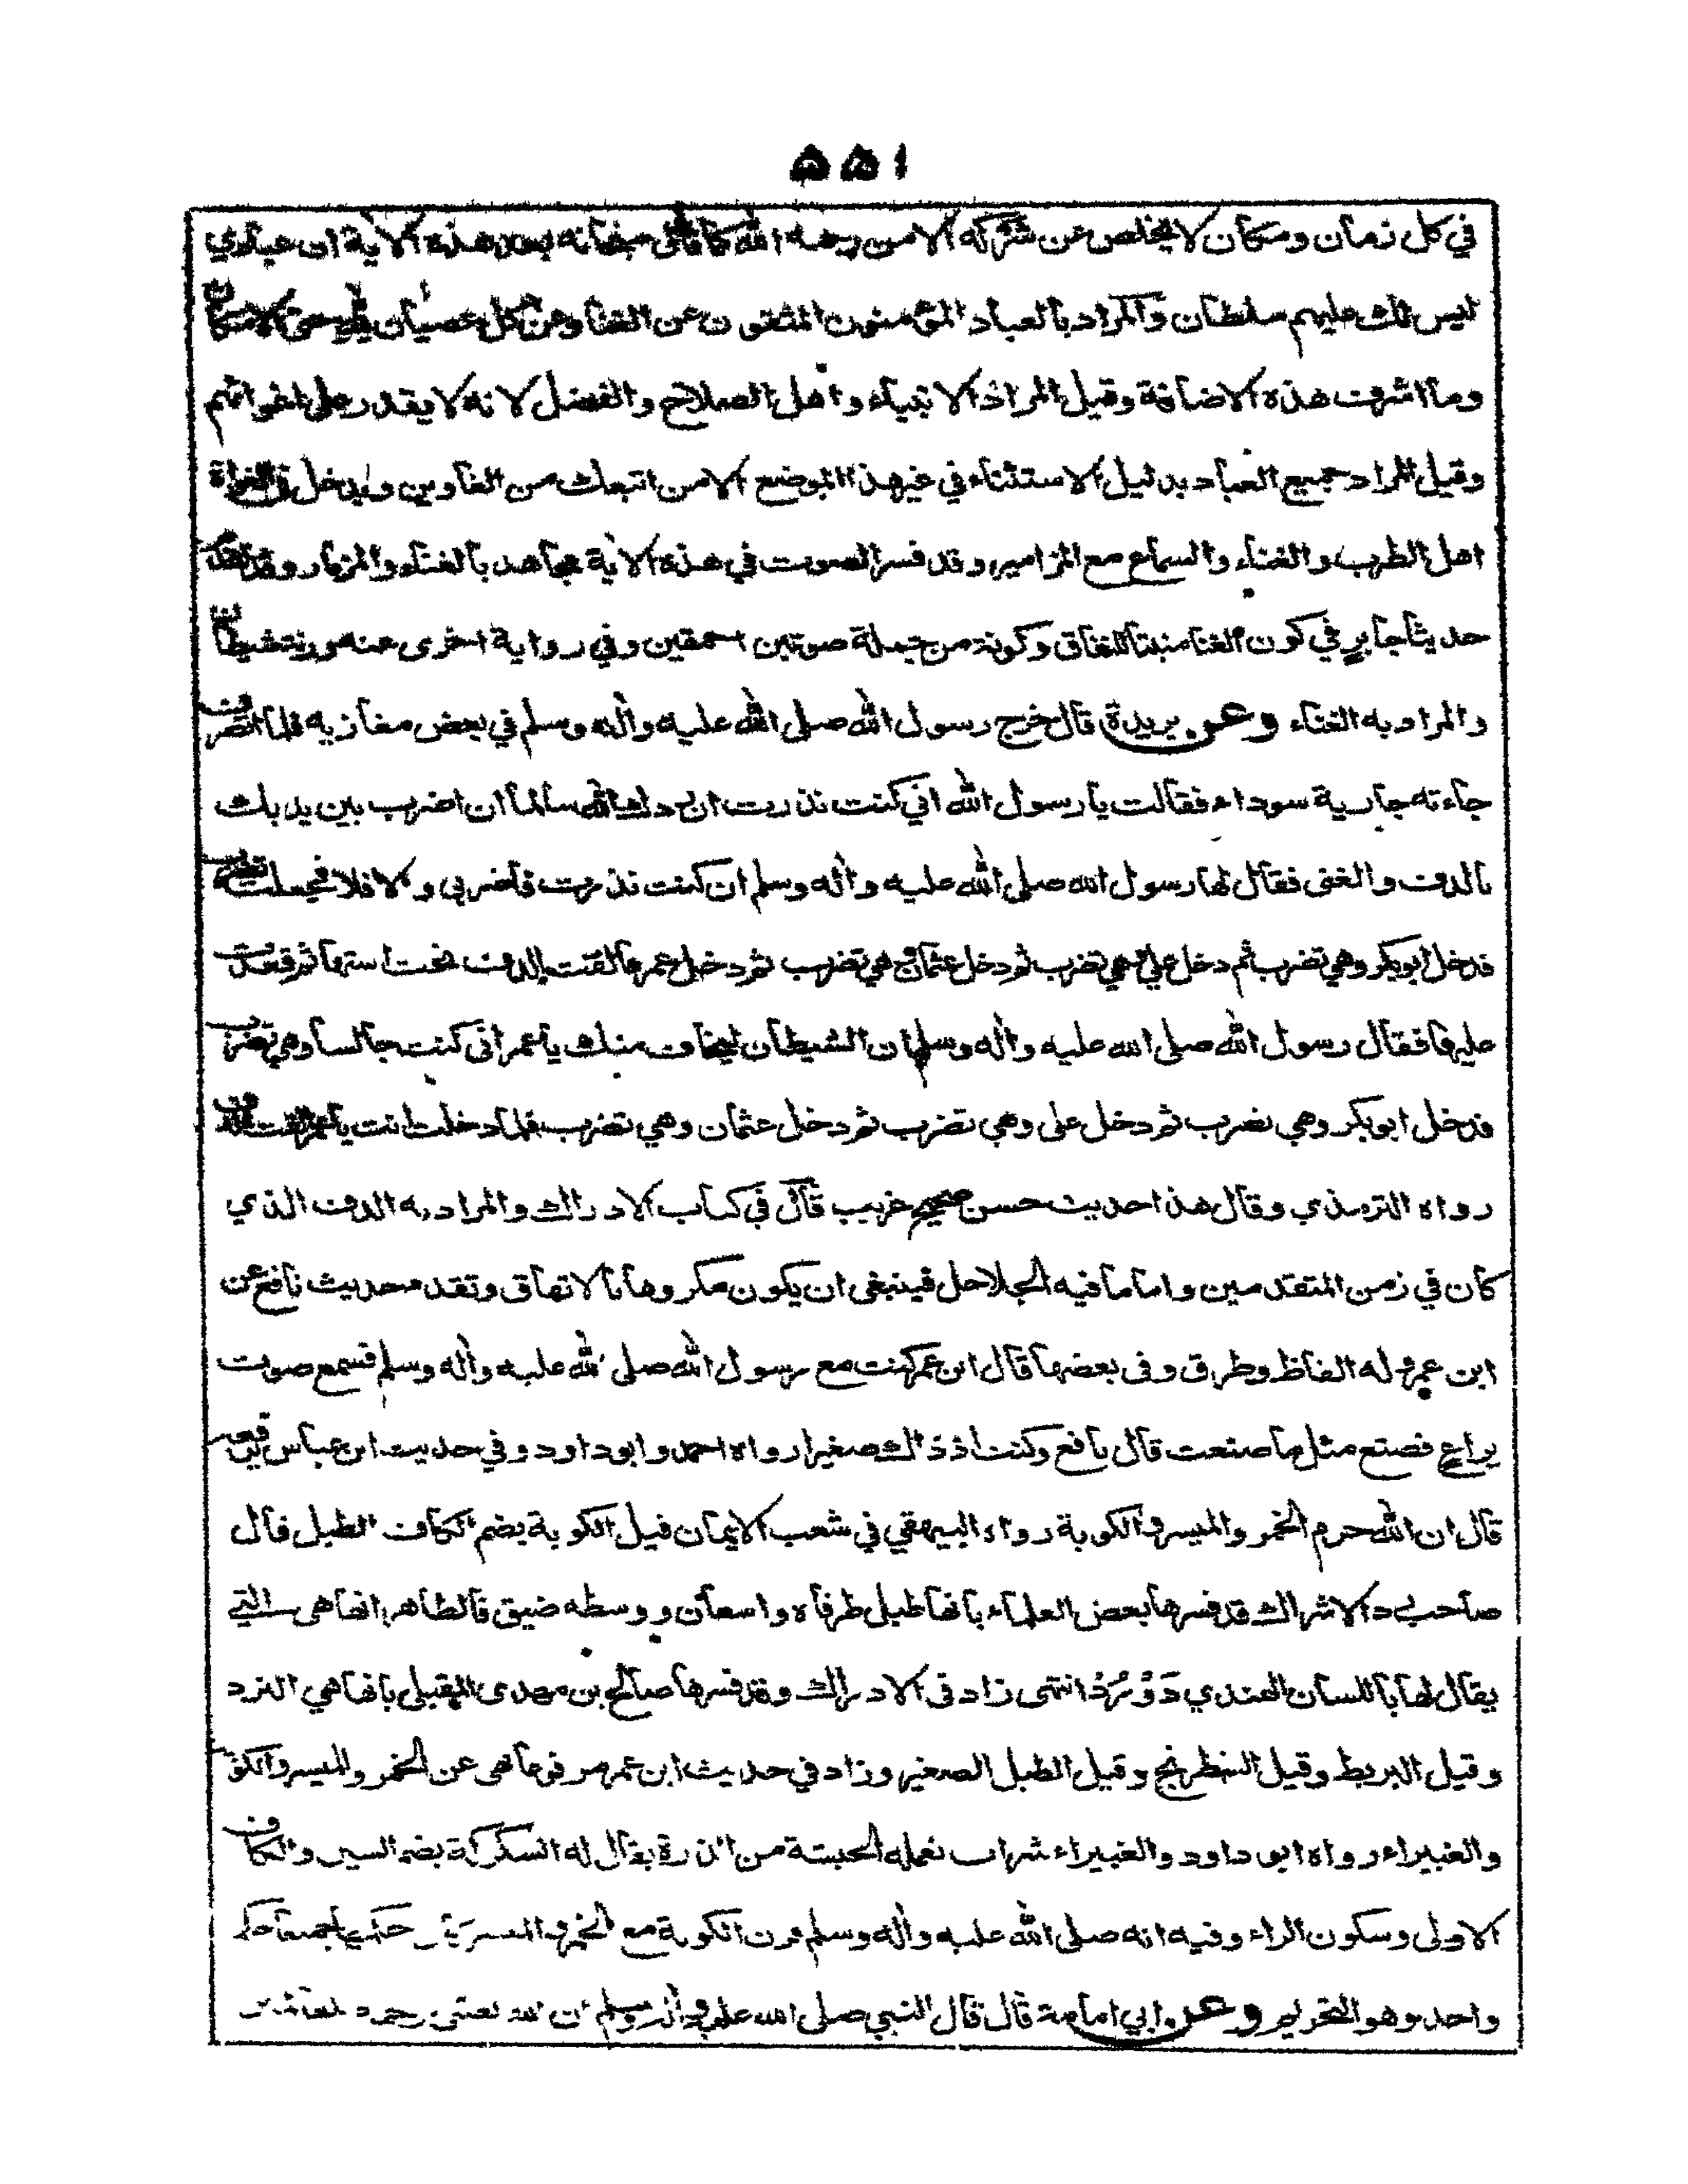 ٥٥١
في كل زمان ومكان لا يخلص عن شركه الا من رحمه الله كما قال سبحانه بعد هذه الاية ان عبادي
ليس لك عليهم سلطان والمراد بالعباد المؤمنون المتقون عن الغنا وعن كل عصيان
وما اشرفت هذه الاضافة وقيل المراد الانبياء واهل الصلاح والفضل لانه لا يقدر على اغوائهم
وقيل المراد جميع العباد بدليل الاستثناء في غير هذا الموضع الا من اتبعك من الغاوين ويدخل في الغواة
اهل الطرب والغناء والسماع مع المزامير وقد فسر الصوت في هذه الاية مجاهد بالغناء والمزمار وقد تقدم
حديث جابر في كون الغنا منبتا للنفاق وكونه من جملة صوتين احمقين وفي رواية اخرى عنه ورنة شيطان
والمراد به الغناء وعن بريدة قال خرج رسول الله صلى الله عليه واله وسلم في بعض مغازيه فلما انصرف
جاءته جارية سوداء فقالت يا رسول الله اني كنت نذرت ان ردك الله سالما ان اضرب بين يديك
بالدف والغنى فقال لها رسول الله صلى الله عليه واله وسلم ان كنت نذرت فاضربي والا فلا فجعلت تضرب
فدخل ابوبكر وهي تضرب ثم دخل علي وهي تضرب ثم دخل عثمان وهي تضرب ثم دخل عمر فالقت الدف تحت استها ثم قعدت
عليها فقال رسول الله صلى الله عليه واله وسلم ان الشيطان ليخاف منك يا عمر اني كنت جالسا وهي تضرب
فدخل ابوبكر وهي تضرب ثم دخل على وهي تضرب ثم دخل عثمان وهي تضرب فلما دخلت انت يا عمر القت الدف
رواه الترمذي وقال هذا حديث حسن صحيح غريب قال في كتاب الادراك والمراد به الدف الذي
كان في زمن المتقدمين واما ما فيه الجلاجل فينبغى ان يكون مكروها بالاتفاق وتقدم حديث نافع عن
ابن عمر وله الفاظ وطرق وفى بعضها قال ابن عمر كنت مع رسول الله صلى الله عليه واله وسلم فسمع صوت
يراع فصنع مثل ما صنعت قال نافع وكنت اذ ذاك صغيرا رواه احمد وابوداود وفي حديث ابن عباس يرفعه
قال ان الله حرم الخمر والميسر والكوبة رواه البيهقي في شعب الايمان قيل الكوبة بضم الكاف الطبل قال
صاحب رد الاشراك قد فسرها بعض العلماء بانها طبل طرفاه واسعان ووسطه ضيق فالظاهر انها هى التي
يقال لها باللسان الهندي دَوْرُدْ انتهى زاد فى الادراك وقد فسرها صالح بن مهدى المقبلى بانها هي النرد
وقيل البربط وقيل الشطرنج وقيل الطبل الصغير وزاد في حديث ابن عمر مرفوعا نهى عن الخمر والميسر والكوبة
والغبيراء رواه ابو داود والغبيراء شراب تعمله الحبشة من الذرة يقال له السكركة بضم السين والكاف
الاولى وسكون الراء وفيه انه صلى الله عليه واله وسلم قرن الكوبة مع الخمر والميسر حكمها جميعا حكم
واحد وهو التحريم وعن ابي امامة قال قال النبي صلى الله عليه واله وسلم ان الله بعثني رحمة للعالمين